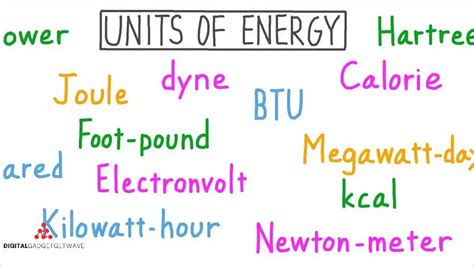 ower UNITS OF ENERGY Hartree
Joule dyne BTU Calorie
Foot-pound Megawatt-da
ared Electronvolt kcal
Kilowatt-hour Newton-meter
DIGITALGADGETGETWAVE